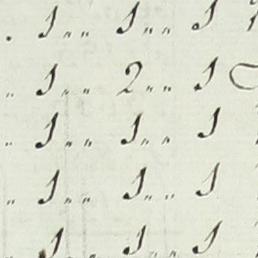 . 1 „ „ 1 „ „ 1
„ 1 „ „ 2 „ „ 1
„ 1 „ „ 1 „ „ 1
„ 1 „ „ 1 „ „ 1
„ 1 „ „ 1 „ „ 1